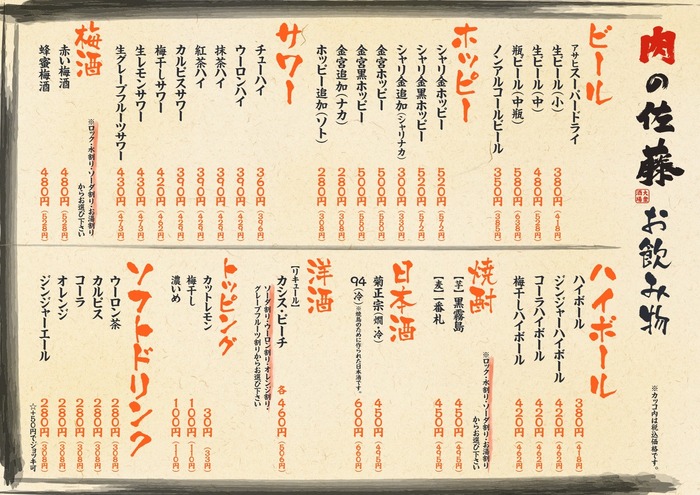 肉の佐藤 お飲み物
大衆酒場
※カッコ内は税込価格です。
ビール
アサヒスーパードライ
生ビール(小) 380円(418円)
生ビール(中) 480円(528円)
瓶ビール(中瓶) 580円(638円)
ノンアルコールビール 350円(385円)
ホッピー
シャリ金ホッピー 520円(572円)
シャリ金黒ホッピー 520円(572円)
シャリ金追加(シャリナカ) 300円(330円)
金宮ホッピー 500円(550円)
金宮黒ホッピー 500円(550円)
金宮追加(ナカ) 280円(308円)
ホッピー追加(ソト) 280円(308円)
サワー
チューハイ 360円(396円)
ウーロンハイ 390円(429円)
抹茶ハイ 390円(429円)
紅茶ハイ 390円(429円)
カルピスサワー 390円(429円)
梅干しサワー 420円(462円)
生レモンサワー 430円(473円)
生グレープフルーツサワー 430円(473円)
梅酒
※ロック・水割り・ソーダ割り・お湯割り
からお選び下さい
赤い梅酒 480円(528円)
蜂蜜梅酒 480円(528円)
ハイボール
ハイボール 380円(418円)
ジンジャーハイボール 420円(462円)
コーラハイボール 420円(462円)
梅干しハイボール 420円(462円)
焼酎
※ロック・水割り・ソーダ割り・お湯割り
からお選び下さい
【芋】黒霧島 450円(495円)
【麦】一番札 450円(495円)
日本酒
菊正宗(燗・冷) 450円(495円)
94(冷)※焼鳥のために作られた日本酒です。 600円(660円)
洋酒
【リキュール】
カシス・ピーチ 各460円(506円)
ソーダ割り・ウーロン割り・オレンジ割り・
グレープフルーツ割りからお選び下さい
トッピング
カットレモン 30円(33円)
梅干し 100円(110円)
濃いめ 100円(110円)
ソフトドリンク
ウーロン茶 280円(308円)
カルピス 280円(308円)
コーラ 280円(308円)
オレンジ 280円(308円)
ジンジャーエール 280円(308円)
☆+50円でジョッキ可